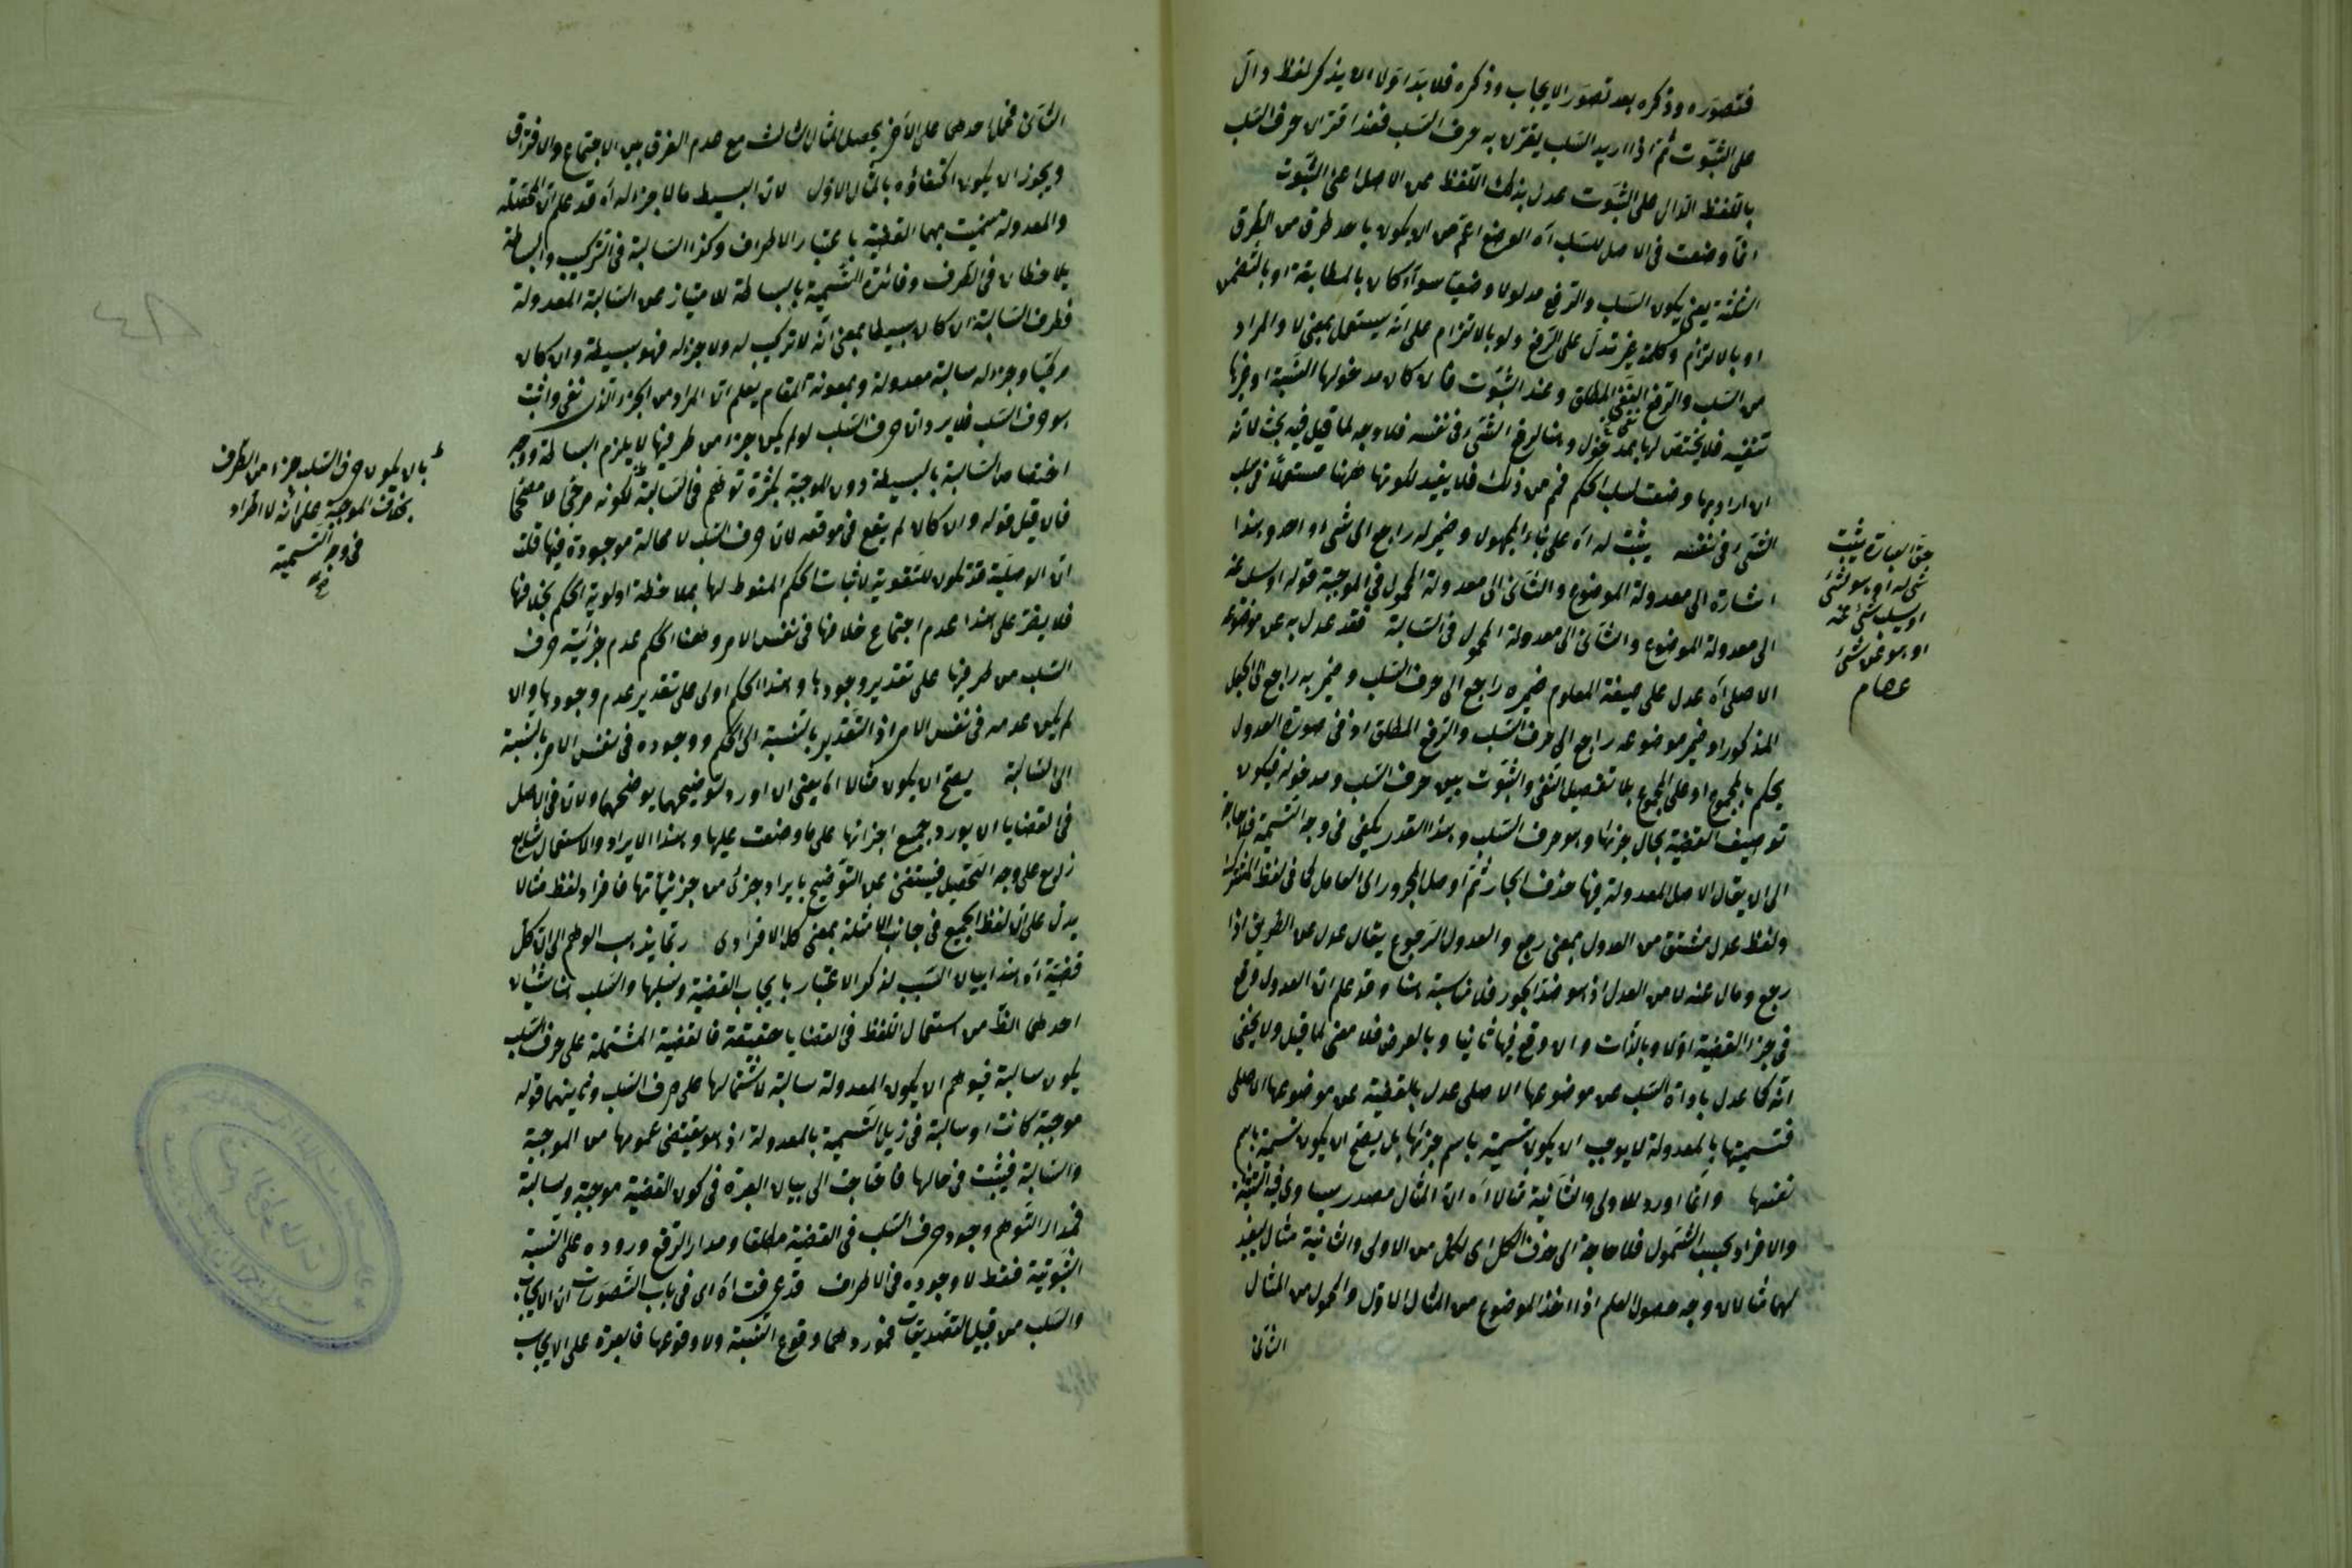 فتصوره وذكره بعد تصور الايجاب وذكره فلا بد اولا ان يذكر لفظ دال
على الثبوت ثم اذا اريد السلب يقترن به حرف السلب فعند اقتران حرف السلب
باللفظ الدال على الثبوت عدل بذلك اللفظ عن الاصل اعنى الثبوت
انما وضعت فى الاصل للسلب آه الوضع اعم من ان يكون باحد طرق من الطرق
الثلثة يعنى يكون السلب والرفع مدلولا وضعيا سواء كان بالمطابقة او بالتضمن
او بالالتزام وكلمة غير تدل على الرفع ولو بالالتزام على انه يستعمل بمعنى لا والمراد
من السلب والرفع النفى المطلق وعند الثبوت فان كان مدخولها النسبة او غيرها
تنفيه فلا يختص لها بمدخول وهنا لرفع الشئ فى نفسه فلا وجه لما قيل فيه بحث لانه
ان اراد بها وضعت لسلب الحكم فمم من ذلك فلا يفيد لكونها ههنا مستعملا فى سلب
الشئ فى نفسه يثبت له آه على بناء المجهول وضمير له راجع الى شئ او احد وهذا
اشارة الى معدولة الموضوع والثانى الى معدولة المحمول فى الموجبة قوله او سلب عنه
الى معدولة الموضوع والثانى الى معدولة المحمول فى السالبة فقد عدل به عن موضوعه
الاصلى آه عدل على صيغة المعلوم ضميره راجع الى حرف السلب وضمير به راجع الى الجعل
المذكور او ضمير موضوعه راجع الى حرف السلب والرفع المطلق او فى صورة العدول
يحكم بالمجموع او على المجموع بلا تفصيل النفى والثبوت بين حرف السلب ومدخوله فيكون
توصيف القضية بحال جزئها وهو حرف السلب وهذا القدر يكفى فى وجه التسمية فلا حاجة
الى ان يقال الاصل المعدولة فيها حذف الجار ثم اوصل المجرور الى العامل كما فى لفظ المشترك
ولفظ عدل مشتق من العدول بمعنى رجع والعدول الرجوع يقال عدل عن الطريق اذا
رجع ومال عنه لا من العدل اذ هو ضد الجور فلا مناسبة هنا وقد علم ان العدول وقع
فى جزء القضية اولا وبالذات وان وقع فيها ثانيا وبالعرض فلا معنى لما قيل ولا يخفى
انه كما عدل باداة السلب عن موضوعها الاصلى عدل بالقضية عن موضوعها الاصلى
فتسميتها بالمعدولة لا يوجب ان يكون تسمية باسم جزئها بل يصح ان يكون تسمية باسم
نفسها وانما اورد للاولى والثانية مثالا آه ان المثال مصدر يساوى فيه التثنية
والافراد بحسب الشمول فلا حاجة الى حذف الكل اى لكل من الاولى والثانية مثال يفيد
لهما مثالان وجه حصول العلم اذا اخذ الموضوع من المثال الاول والمحمول من المثال
الثانى
حق العبارة يثبت
شئ له او هو لشئ
او سلب شئ عنه
او هو عن شئ
عصام
الثانى فحمل احدهما على الآخر يحصل المثال الثالث مع عدم الفرق بين الاجتماع والافتراق
ويجوز ان يكون اكتفاؤه بالمثال الاول لان البسيط ما لا جزء له آه قد علم ان المحصلة
والمعدولة سميت بهما القضية باعتبار الاطراف وكذا السالبة فى التركيب والبساطة
يلاحظان فى الطرف وفائدة التسمية بالبساطة للامتياز عن السالبة المعدولة
فطرف السالبة ان كان بسيطا بمعنى انه لا تركيب له ولا جزء له فهو بسيطة وان كان
مركبا وجزء له سالبة معدولة وبمعونة المقام يعلم ان المراد من الجزء الذى نفى واثبت
هو حرف السلب فلا يرد ان حرف السلب لو لم يكن جزءا من طرفيها لا يلزم البساطة ووجه
اختصاص السالبة بالبسيطة دون الموجبة بكثرة توهم فى السالبة لكونه مرخى لا مصححا
فان قيل قوله وان كان لم يقع فى موقعه لان حرف السلب لا محالة موجودة فيها قلت
ان الوصلية قد تكون للتقوية لاثبات الحكم المنوط لها بملاحظة اولوية الحكم بخلافها
فلا يضر على هذا عدم اجتماع خلافها فى نفس الامر وههنا الحكم عدم جزئية حرف
السلب من طرفيها على تقدير وجودها وهذا الحكم اولى على تقدير عدم وجودها وان
لم يكن عدمه فى نفس الامر اذ التقدير بالنسبة الى الحكم ووجوده فى نفس الامر بالنسبة
الى السالبة يصح ان يكون مثالا آه يعنى ان اورد لتوضيحهما يوضحهما ولان فى الاصل
فى القضايا ان يورد جميع اجزائها على ما وضعت عليها وهذا الايراد والاستعمال شايع
على وجه التحصيل فيستغنى عن التوضيح بايراد جزئى من جزئياتها فافراد لفظ مثالا
يدل على ان لفظ الجميع فى جانب الامثلة بمعنى كل الافرادى ربما يذهب الوهم الى ان كل
قضية آه هذا بيان السبب لذكر الاعتبار بايجاب القضية وسلبها والسلب هنا شيئان
احدهما الظ من استعمال اللفظ فى القضايا حقيقة فالقضية المشتملة على حرف السلب
يكون سالبة فيوهم ان يكون المعدولة سالبة لاشتمالها على حرف السلب وثمينهما قوله
موجبة كانت او سالبة فى ذيل التسمية بالمعدولة اذ هو يقتضى عمومها من الموجبة
والسالبة فيثبت فى حالها فاحتاجت الى بيان العبرة فى كون القضية موجبة وسالبة
فمدار التوهم وجود حرف السلب فى القضية مطلقا ومدار الرفع وروده على النسبة
الثبوتية فقط لا وجوده فى الاطراف قد عرفت آه اى فى باب التصورات ان الايجاب
والسلب من قبيل التصديقات فموردهما وقوع النسبة ولا وقوعها فالعبرة على الايجاب
بان يكون حرف السلب جزءا من الطرف
بخلاف الموجبة على انه لا اطراد
فى وجه التسمية